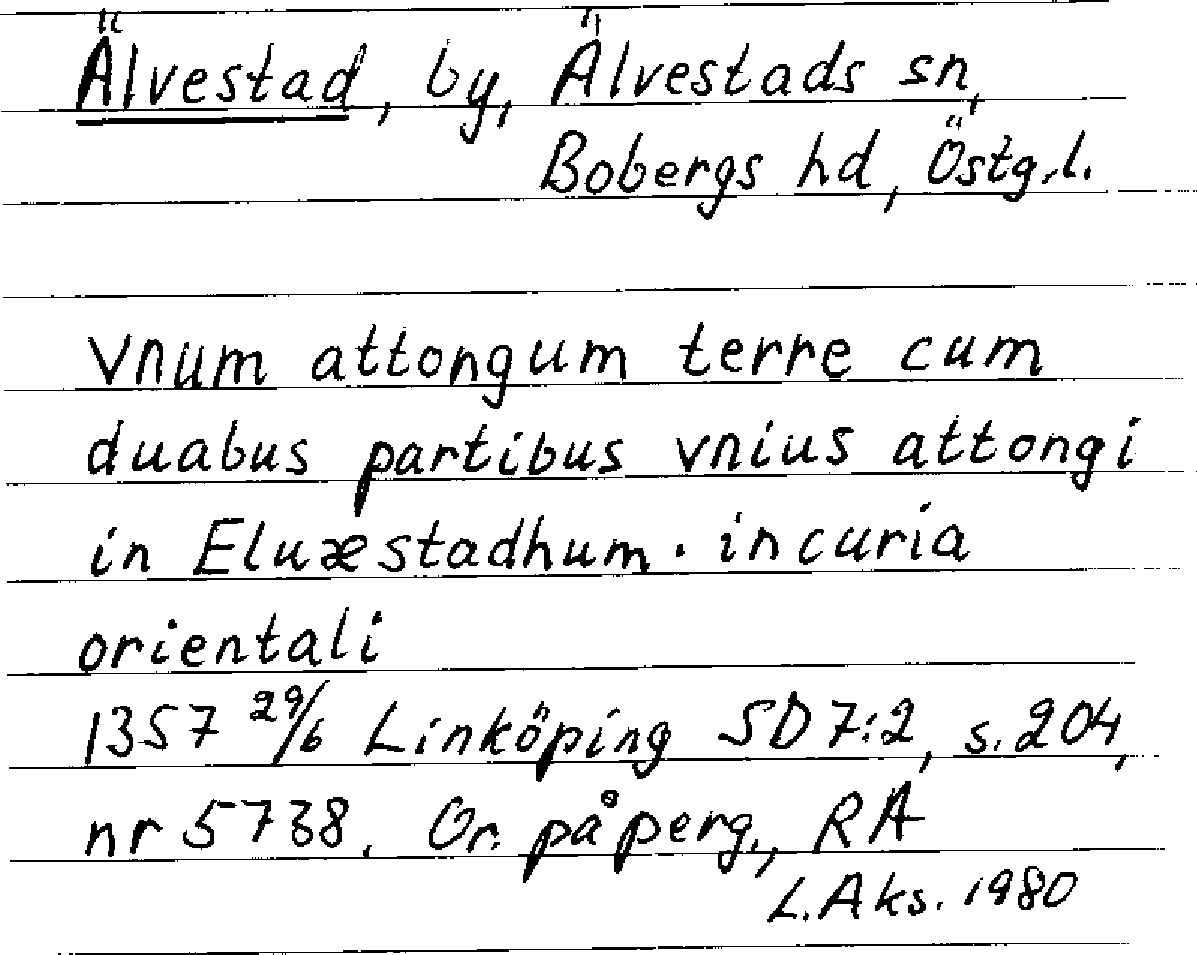 Älvestad, by, Älvestads sn,
Bobergs hd, Östg.l.
vnum attongum terre cum
duabus partibus vnius attongi
in Eluæstadhum. in curia
orientali
1357 29/6 Linköping SD 7:2, s. 204,
nr 5738. Or. på perg., RA
L.Aks. 1980